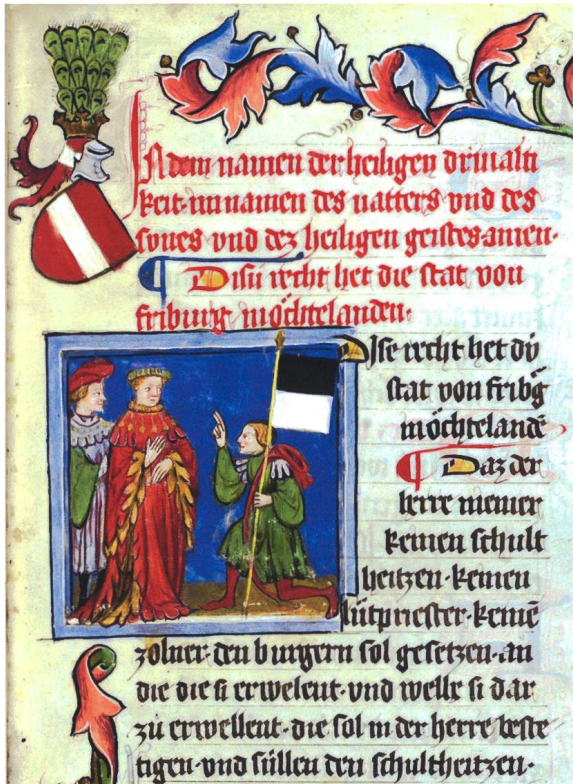 In dem namen der heiligen drivalti
keit im namen des vatters vnd des
sunes vnd dez heiligen geistes amen·
¶ Disü recht het die stat von
friburg möchtelanden·
Dise recht het dü
stat von fribg̃
möchtelandē
¶ Daz der
herre niemer
keinen schult
heitzen· keinen
lütpriester· keinē
zolner· den burgern sol gesetzen· an
die die si erwelent· vnd welle si dar
zů erwellent· die sol in der herre beste
tigen· vnd süllen den schultheitzen·